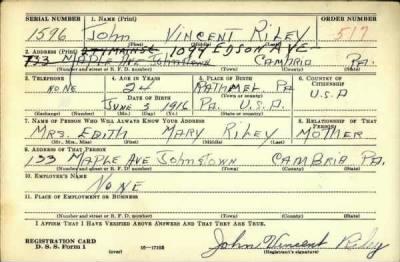 SERIAL NUMBER 1. NAME (Print) ORDER NUMBER
1596 John VINCENT RILEY 517
(First) (Middle) (Last)
2. ADDRESS (Print) 1099 EDSON AVE
133 MAPLE AVE Johnstown CAMBRIA PA.
(Number and street or R. F. D. number) (Town) (County) (State)
3. TELEPHONE 4. AGE IN YEARS 5. PLACE OF BIRTH 6. COUNTRY OF CITIZENSHIP
NONE 24 RATHMEL PA. U.S.A
DATE OF BIRTH (Town or county)
JUNE 3 1916 PA. U.S.A.
(Exchange) (Number) (Mo.) (Day) (Yr.) (State or country)
7. NAME OF PERSON WHO WILL ALWAYS KNOW YOUR ADDRESS 8. RELATIONSHIP OF THAT PERSON
MRS. EDITH MARY RILEY MOTHER
(Mr., Mrs., Miss) (First) (Middle) (Last)
9. ADDRESS OF THAT PERSON
133 MAPLE AVE Johnstown CAMBRIA PA.
(Number and street or R. F. D. number) (Town) (County) (State)
10. EMPLOYER'S NAME
NONE
11. PLACE OF EMPLOYMENT OR BUSINESS
(Number and street or R. F. D. number) (Town) (County) (State)
I AFFIRM THAT I HAVE VERIFIED ABOVE ANSWERS AND THAT THEY ARE TRUE.
REGISTRATION CARD
D. S. S. Form 1 (over) 16-17105 John Vincent Riley
(Registrant's signature)